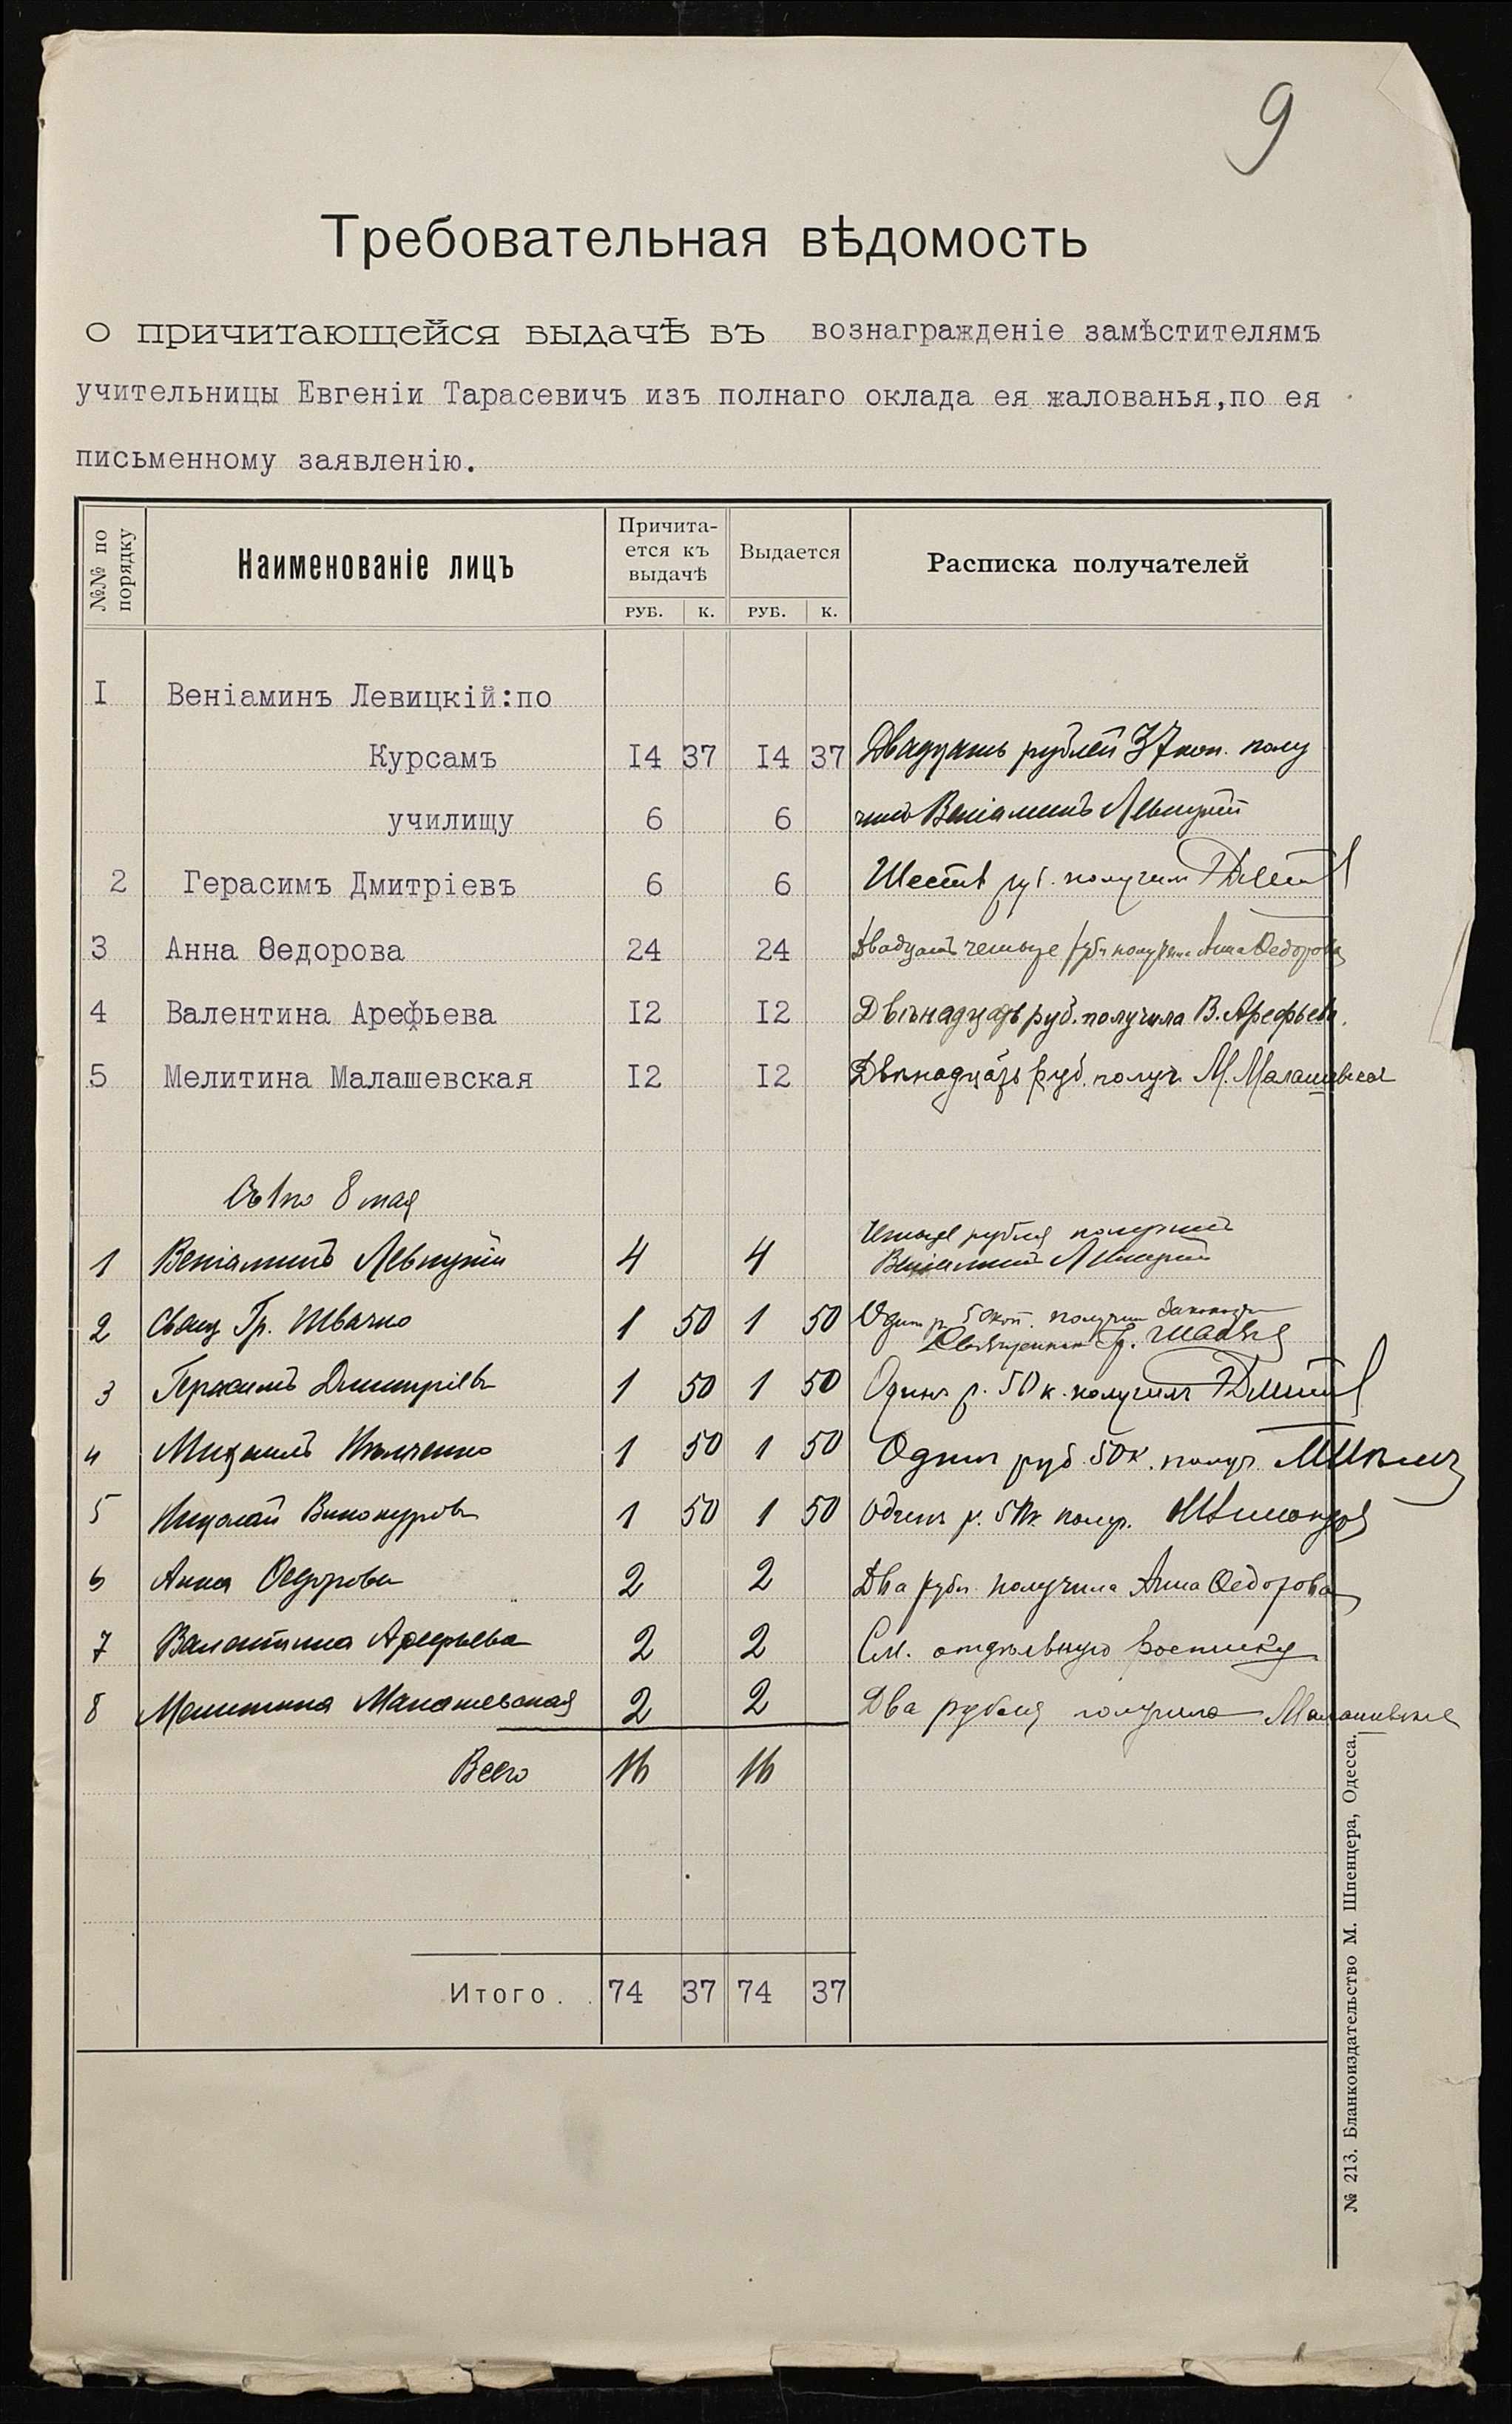 9
Требовательная вѣдомость
о причитающейся выдачѣ въ вознагражденіе замѣстителямъ
учительницы Евгеніи Тарасевичъ изъ полнаго оклада ея жалованья,по ея
письменному заявленію.
№№ по порядку
Наименованіе лицъ
Причита-
ется къ
выдачѣ
Выдается
Расписка получателей
РУБ. К. РУБ. К.
I Веніаминъ Левицкій:по
Курсамъ 14 37 14 37 Двадцать рублей 37 коп. полу
училищу 6 6 чилъ Веніаминъ Левицкій
2 Герасимъ Дмитріевъ 6 6 Шесть руб. получилъ
3 Анна Ѳедорова 24 24 Двадцать четыре рубл получила Анна Ѳедорова
4 Валентина Арефьева I2 I2 Двѣнадцать руб. получила В. Арефьева.
5 Мелитина Малашевская I2 I2 Двѣнадцать руб. получ М. Малашевская
Съ 1 по 8 мая
Четыре рубля получилъ
1 Веніаминъ Левицкій 4 4 Веніаминъ Левицкій
2 Свящ Гр. Швачко 1 50 1 50 Одинъ р. 50 коп. получилъ
Священникъ Гр.
3 Герасимъ Дмитріевъ 1 50 1 50 Одинъ р. 50 к. получилъ
4 Михаилъ 1 50 1 50 Одинъ руб 50 к. получ.
5 Николай Винокуровъ 1 50 1 50 Одинъ р. 50 к. получ.
6 Анна Ѳедорова 2 2 Два рубл. получила Анна Ѳедорова
7 Валентина Арефьева 2 2 См. отдѣльную росписку
8 Мелитина Малашевская 2 2 Два рубля получила Малашевская
Всего 16 16
Итого . . 74 37 74 37
№ 213. Бланкоиздательство М. Шпенцера, Одесса.